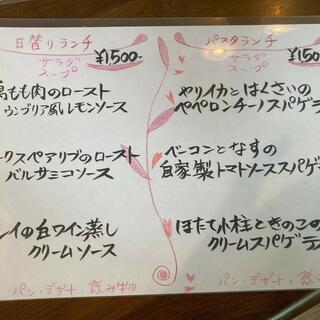 日替りランチ
サラダ
スープ
¥1500-
鶏もも肉のロースト
ウンブリア風レモンソース
ークスペアリブのロースト
バルサミコソース
レイの白ワイン蒸し
クリームソース
パン・デザート・飲み物
パスタランチ
サラダ
スープ
¥1500-
ヤリイカとはくさいの
ペペロンチーノスパゲティ
ベーコンとなすの
自家製トマトソーススパゲ
ほたて小柱ときのこの
クリームスパゲティ
パン・デザート・飲み